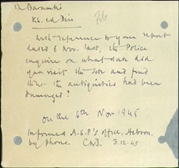 D. Baramki
With reference to your report
dated 6 Nov. last, the Police
inquire on what date did
you visit the site and find
the antiquities had been
damaged?
On the 6th Nov 1945
Informed A.S.P's Office, Hebron,
by phone. 3.12.45